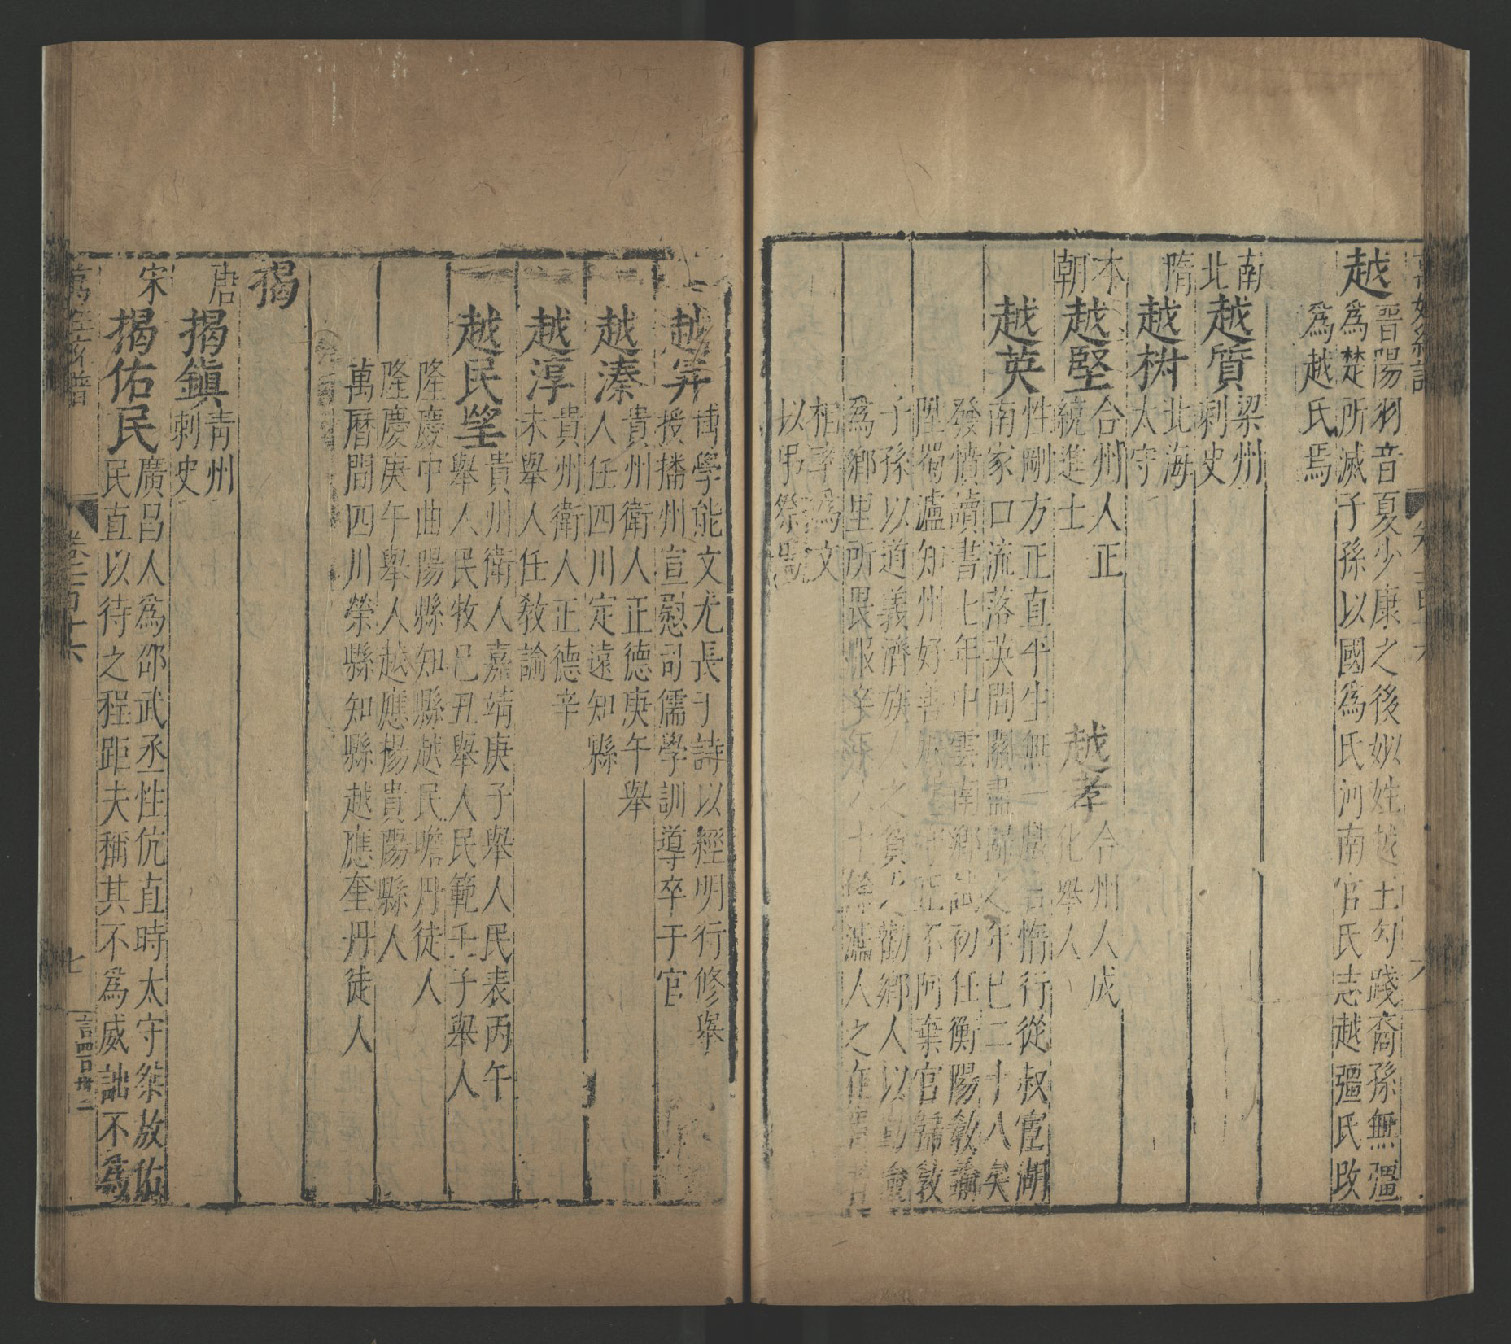 越
晋陽羽音夏少康之後姒姓越王勾踐裔孫無彊
爲楚所滅子孫以國爲氏河南官氏志越彊氏改
爲越氏焉
南北
越質
梁州
刺史
隋
越椨
北海
太守
本朝
越堅
合州人正
統進士
越孝
合州人成
化舉人
越英
性剛方正直平生無一戲言惰行從叔宦湖
南家口流落英間關盡歸之年已二十八矣
發憤讀書七年中雲南鄉試初任衡陽教諭
陞蜀瀘知州好善
正不阿棄官歸敎
子孫以道義濟族人之貧
勸鄉人以勤
爲鄉里所畏服卒
瀘人之在
相率爲文
以弔祭
越昇
博學能文尤長于詩以經明行修舉
授播州宣慰司儒學訓導卒于官
越溱
貴州衛人正德庚午舉
人任四川定遠知縣
越淳
貴州衛人正德辛
未舉人任敎諭
越民望
貴州衛人嘉靖庚子舉人民表丙午
舉人民牧己丑舉人民範壬子舉人
隆慶中曲陽縣知縣越民瞻丹徒人
隆慶庚午舉人越應楊貴陽縣人
萬曆間四川榮縣知縣越應奎丹徒人
揭
唐
揭鎭
青州
刺史
宋
揭佑民
廣昌人爲邵武丞性伉直時太守桀放佑
民直以待之程距夫稱其不爲威詘不爲
卷之百十六
七